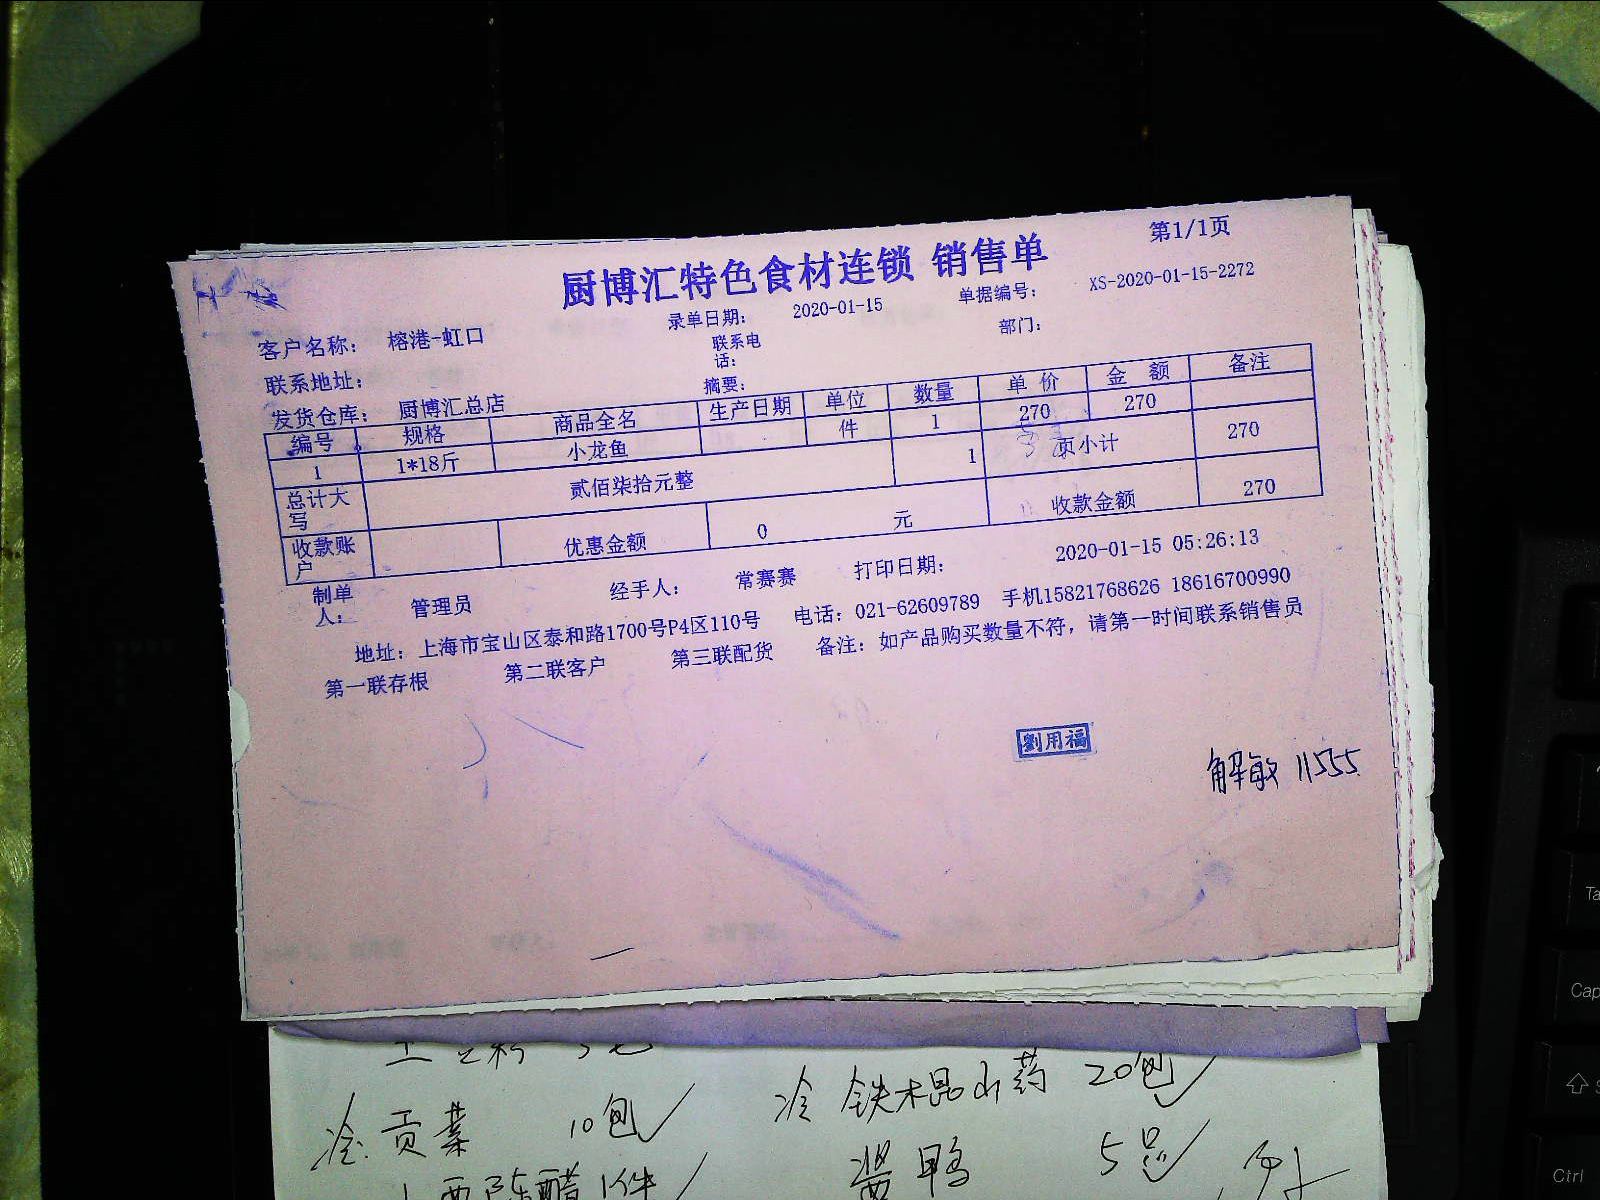 第1/1页
厨博汇特色食材连锁 销售单
录单日期: 2020-01-15 单据编号: XS-2020-01-15-2272
客户名称: 榕港-虹口 联系电话: 部门:
联系地址: 摘要:
发货仓库: 厨博汇总店
编号 规格 商品全名 生产日期 单位 数量 单价 金额 备注
1 1*18斤 小龙鱼 件 1 270 270
总计大写 贰佰柒拾元整 1 页小计 270
收款账户 优惠金额 0 元 收款金额 270
制单人: 管理员 经手人: 常赛赛 打印日期: 2020-01-15 05:26:13
地址: 上海市宝山区泰和路1700号P4区110号 电话: 021-62609789 手机15821768626 18616700990
第一联存根 第二联客户 第三联配货 备注: 如产品购买数量不符, 请第一时间联系销售员
劉用福
解敏 11555
冷 贡菜 10包 冷 铁木昆山药 20包
山西陈醋 1件 酱鸭 5只
Ctrl